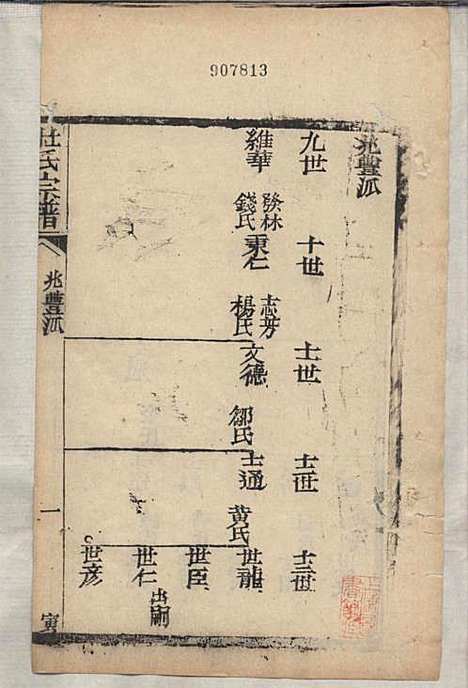 907813
兆豐派
九世
十世
十一世
十二世
十三世
維華
發林
錢氏
東仁
志芳
楊氏
文德
鄒氏
士通
黄氏
世龍
世臣
世仁
出嗣
世彦
杜氏宗譜
兆豐派
一
寅